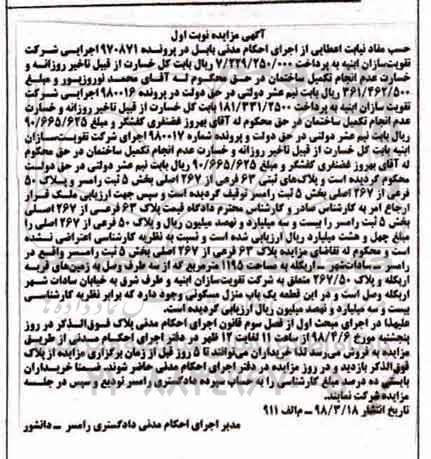 آگهی مزایده نوبت اول
حسب مفاد نیابت اعطایی از اجرای احکام مدنی بابل در پرونده ۹۷۰۸۷۱اجرایی شرکت
تقویت‌سازان ابنیه به پرداخت ۷/۲۲۹/۲۵۰/۰۰۰ ریال بابت کل خسارت از قبیل تاخیر روزانه و
خسارت عدم انجام تکمیل ساختمان در حق محکوم له آقای محمد لوروزپور و مبلغ
۳۶۱/۴۶۲/۵۰۰ ریال بابت نیم عشر دولتی در حق دولت در پرونده ۹۸۰۰۱۶اجرایی شرکت
تقویت سازان ابنیه به پرداخت ۱۸۱/۳۳۱/۲۵۰۰ بابت کل خسارت از قبیل تاخیر روزانه و خسارت
عدم انجام تکمیل ساختمان در حق محکوم له آقای بهروز غضنفری گفشگر و مبلغ ۹۰/۶۶۵/۶۲۵
ریال بابت نیم عشر دولتی در حق دولت و پرونده شماره ۹۸۰۰۱۷ اجرای شرکت تقویت‌سازان
ابنیه بابت کل خسارت از قبیل تاخیر روزانه و خسارت عدم انجام تکمیل ساختمان در حق محکوم
له آقای بهروز غضنفری گفشگر و مبلغ ۹۰/۶۶۵/۶۲۵ ریال بابت نیم عشر دولتی در حق دولت
محکوم گردیده است و پلاک‌های ثبتی ۶۳ فرعی از ۲۶۷ اصلی بخش ۵ ثبت رامسر و پلاک ۵۰
فرعی از ۲۶۷ اصلی بخش ۵ ثبت رامسر توقیف گردیده است و سپس جهت ارزیابی ملک قرار
ارجاع امر به کارشناس صادر و کارشناس محترم دادگاه قیمت پلاک ۶۳ فرعی از ۲۶۷ اصلی
بخش ۵ ثبت رامسر را بیست و سه میلیارد و نهصد میلیون ریال و پلاک ۵۰ فرعی از ۲۶۷ اصلی را
مبلغ چهل و هشت میلیارد ریال ارزیابی شده است و نسبت به نظریه کارشناسی اعتراضی نشده
است و محکوم له تقاضای مزایده پلاک ۶۳ فرعی از ۲۶۷ اصلی بخش ۵ ثبت رامسر واقع در
رامسر - سادات‌شهر - اربکله به مساحت ۱۱۹۵ مترمربع که از سه طرف وصل به زمین‌های قریه
اربکله و پلاک ۲۶۷/۵۰ متعلق به شرکت تقویت‌سازان ابنیه و طرف شرق به خیابان سادات شهر
اربکله وصل است و در این قطعه یک باب منزل مسکونی وجود دارد که برابر نظریه کارشناسی
بیست و سه میلیارد و نهصد میلیون ریال ارزیابی گردیده است.
علیهذا در اجرای مبحث اول از فصل سوم قانون اجرای احکام مدنی پلاک فوق‌الذکر در روز
پنجشنبه مورخ ۹۸/۴/۶ از ساعت ۱۱ لغایت ۱۲ ظهر در دفتر اجرای احکام مدنی از طریق
مزایده به فروش می‌رسد لذا خریداران می‌توانند تا ۵ روز قبل از زمان برگزاری مزایده از پلاک
فوق‌الذکر بازدید و در روز مزایده در دفتر اجرای احکام مدنی حاضر شوند. ضمنا خریداران
بایستی ده درصد مبلغ کارشناسی را به حساب سپرده دادگستری رامسر تودیع و سپس در جلسه
مزایده شرکت نمایند.
تاریخ انتشار ۹۸/۳/۱۸ - م‌الف ۹۱۱
مدیر اجرای احکام مدنی دادگستری رامسر - دانشور